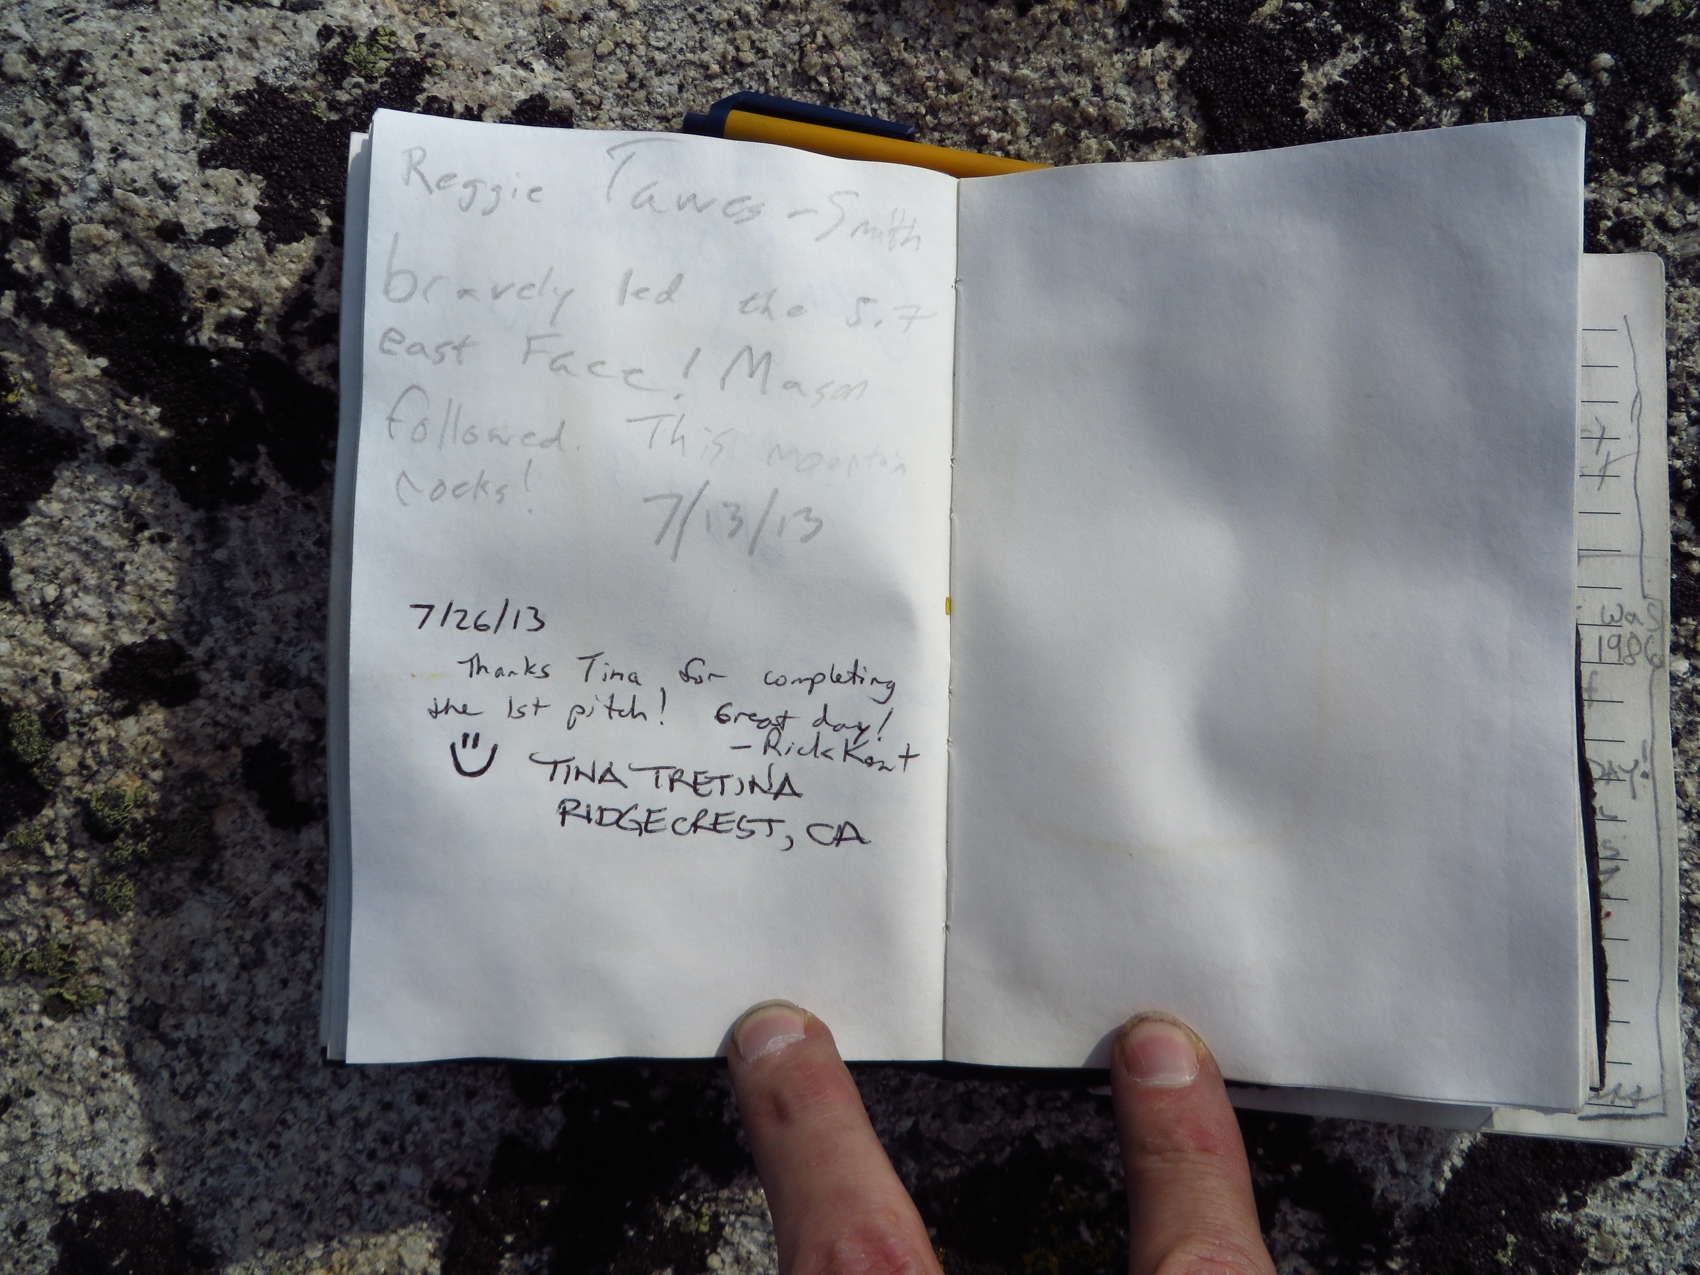 Reggie Tawes-Smith
bravely led the 5.7
east Face! Mason
followed. This mountain
rocks!
7/13/13
7/26/13
Thanks Tina for completing
the 1st pitch! Great day!
-Rick Kent
TINA TRETINA
RIDGECREST, CA
was
1986